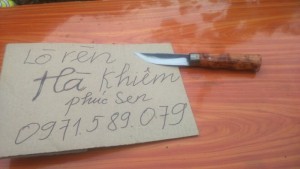 Lò rèn
Hà Khiêm
phúc Sen
0971.589.079